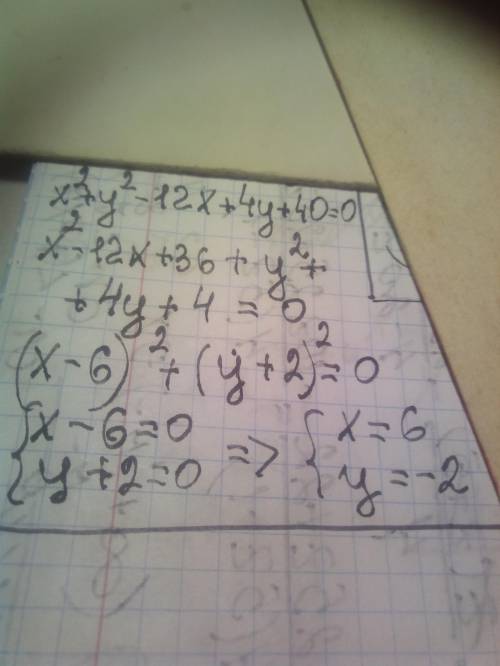 x²+y²-12x+4y+40=0
x²-12x+36+y²+
+4y+4=0
(x-6)²+(y+2)²=0
{x-6=0 => {x=6
{y+2=0 {y=-2